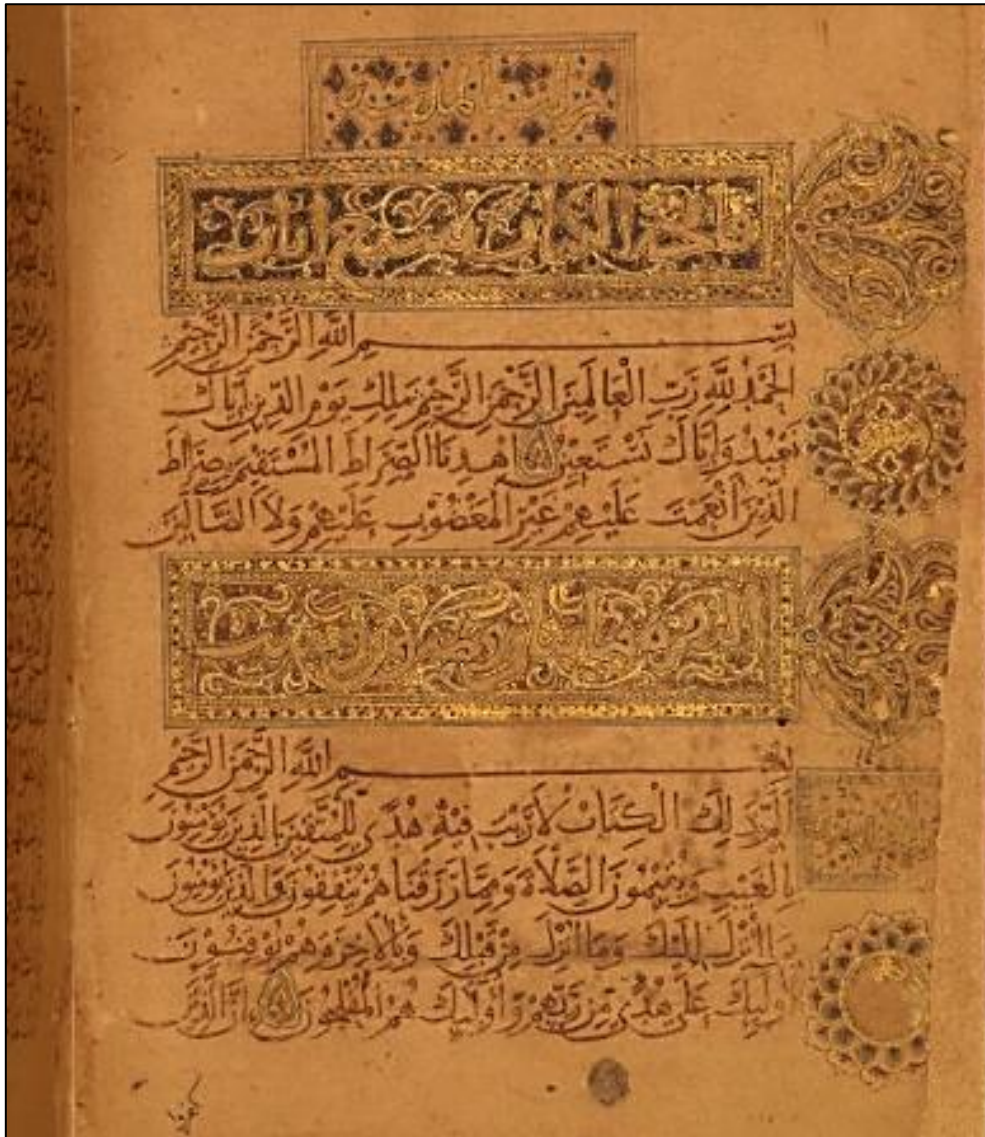 فاتحة الكتاب سبع ايات
بسم الله الرحمن الرحيم
الحمد لله رب العالمين الرحمن الرحيم ملك يوم الدين اياك
نعبد واياك نستعين اهدنا الصراط المستقيم صراط
الذين انعمت عليهم غير المغضوب عليهم ولا الضالين
بسم الله الرحمن الرحيم
الم ذلك الكتاب لا ريب فيه هدى للمتقين الذين يومنون
بالغيب ويقيمون الصلاة ومما رزقناهم ينفقون والذين يومنون
بما انزل اليك وما انزل من قبلك وبالاخرة هم يوقنون
اوليك على هدى من ربهم واوليك هم المفلحون ان الذين